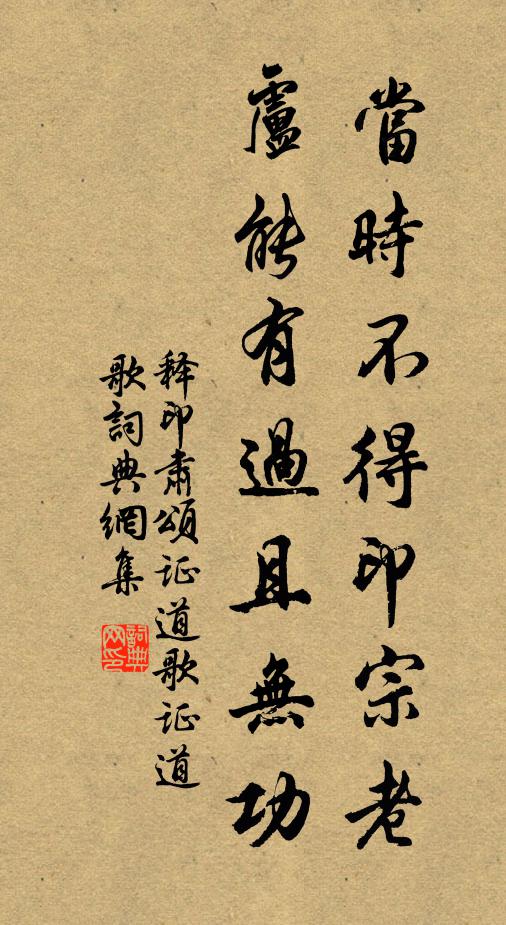 當時不得印宗老
盧能有過且無功
释印肅頌证道歌证道
歌詞典網集
詞典
网印